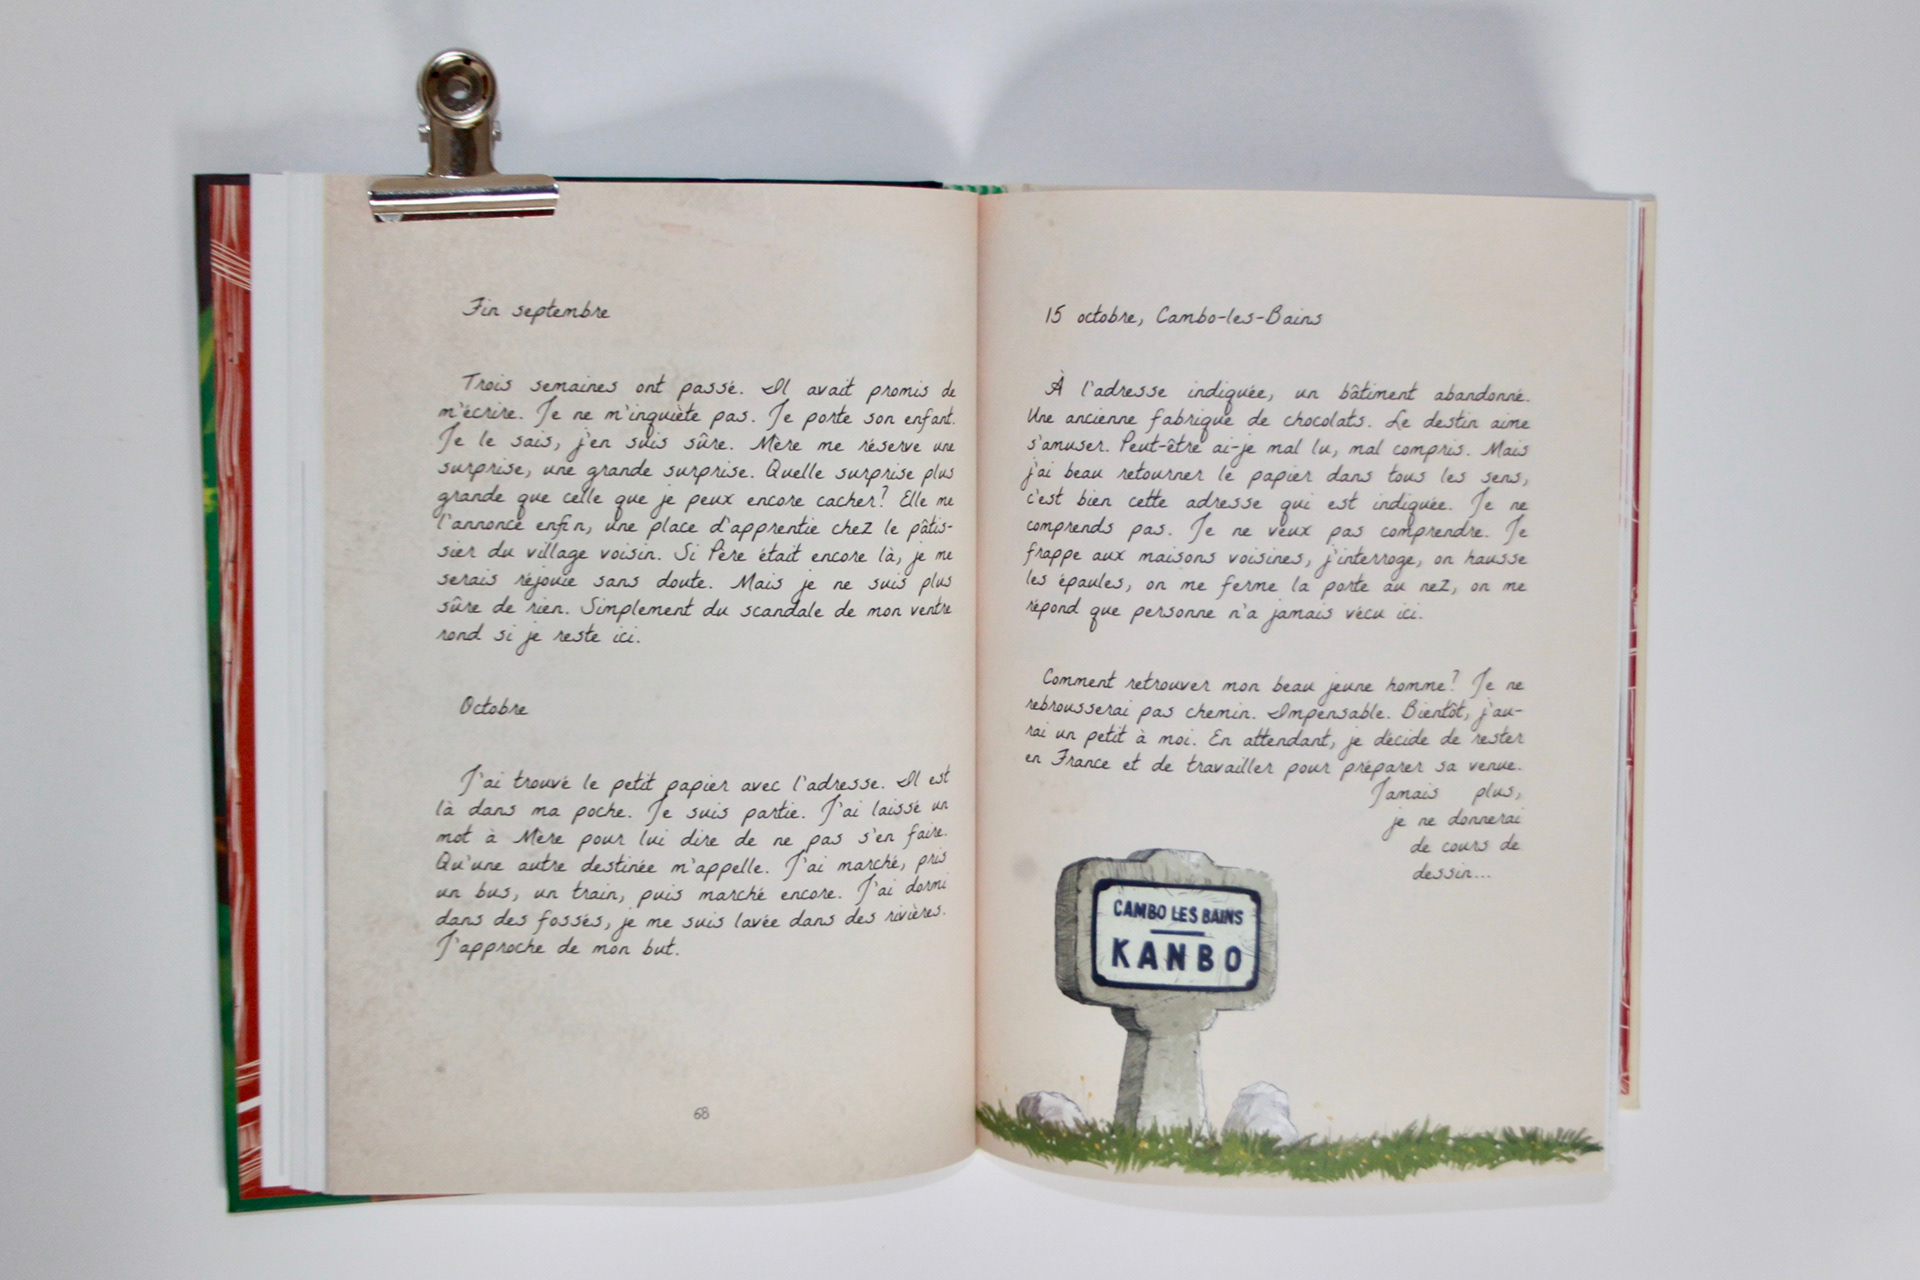 Fin septembre
Trois semaines ont passé. Il avait promis de
m'écrire. Je ne m'inquiète pas. Je porte son enfant.
Je le sais, j'en suis sûre. Mère me réserve une
surprise, une grande surprise. Quelle surprise plus
grande que celle que je peux encore cacher? Elle me
l'annonce enfin, une place d'apprentie chez le pâtis-
sier du village voisin. Si Père était encore là, je me
serais réjouie sans doute. Mais je ne suis plus
sûre de rien. Simplement du scandale de mon ventre
rond si je reste ici.
Octobre
J'ai trouvé le petit papier avec l'adresse. Il est
là dans ma poche. Je suis partie. J'ai laissé un
mot à Mère pour lui dire de ne pas s'en faire.
Qu'une autre destinée m'appelle. J'ai marché, pris
un bus, un train, puis marché encore. J'ai dormi
dans des fossés, je me suis lavée dans des rivières.
J'approche de mon but.
68
15 octobre, Cambo-les-Bains
À l'adresse indiquée, un bâtiment abandonné.
Une ancienne fabrique de chocolats. Le destin aime
s'amuser. Peut-être ai-je mal lu, mal compris. Mais
j'ai beau retourner le papier dans tous les sens,
c'est bien cette adresse qui est indiquée. Je ne
comprends pas. Je ne veux pas comprendre. Je
frappe aux maisons voisines, j'interroge, on hausse
les épaules, on me ferme la porte au nez, on me
répond que personne n'a jamais vécu ici.
Comment retrouver mon beau jeune homme? Je ne
rebrousserai pas chemin. Impensable. Bientôt, j'au-
rai un petit à moi. En attendant, je décide de rester
en France et de travailler pour préparer sa venue.
Jamais plus,
je ne donnerai
de cours de
dessin...
CAMBO LES BAINS
KANBO